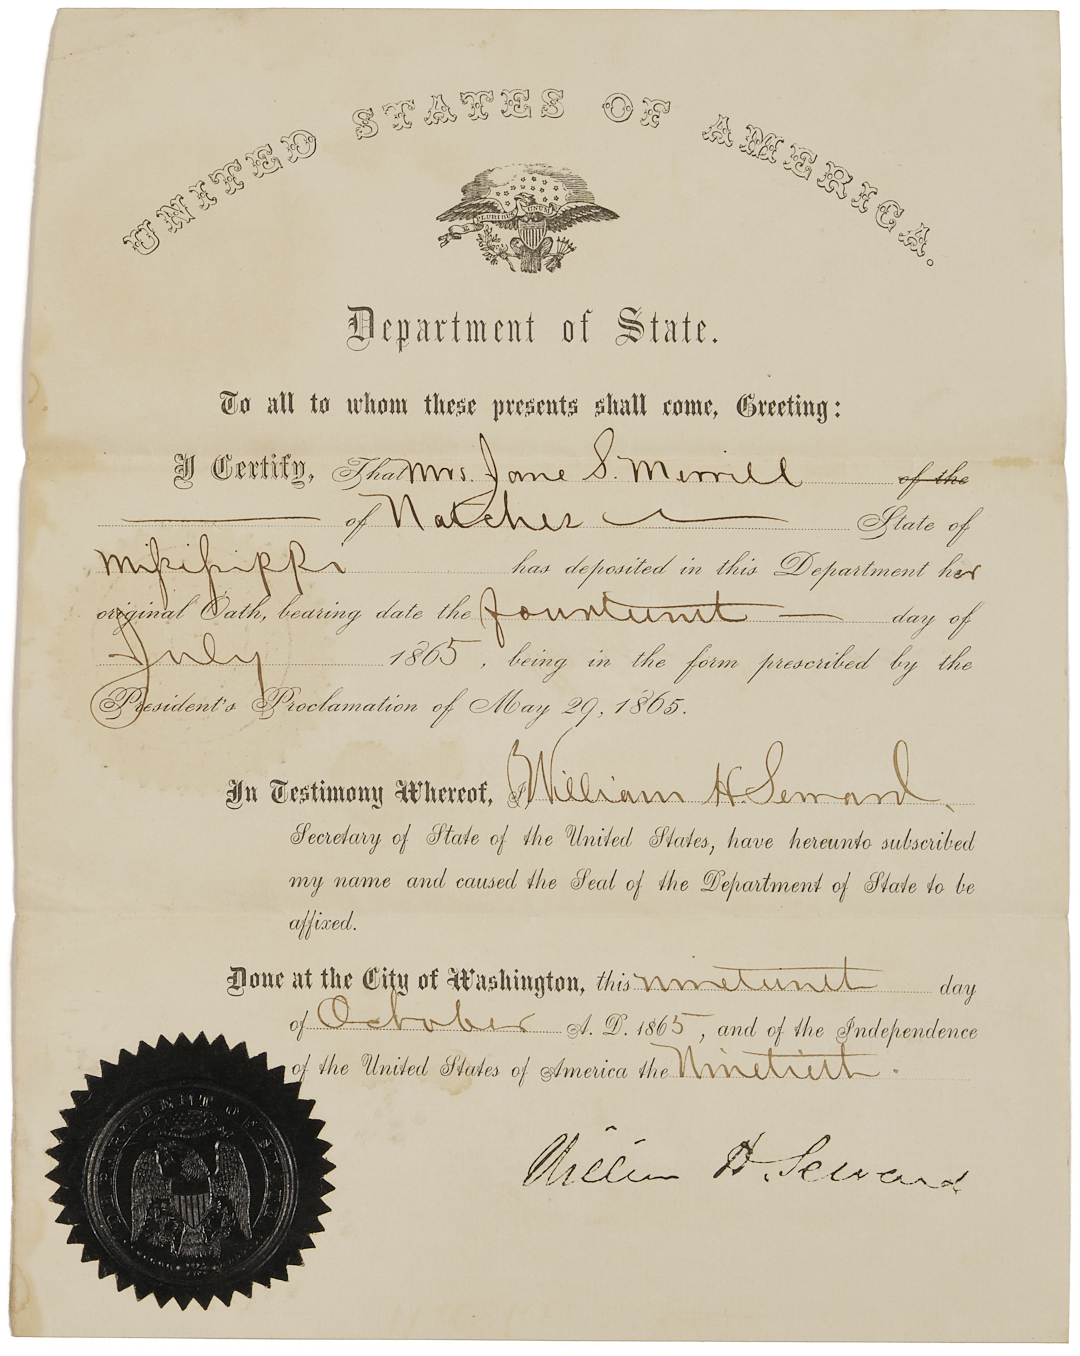 UNITED STATES OF AMERICA.
E PLURIBUS UNUM
Department of State.
To all to whom these presents shall come, Greeting:
I Certify, That Mrs. Jane S. Merrill of the
of Natchez State of
Mississippi has deposited in this Department her
original Oath, bearing date the fourteenth day of
July 1865, being in the form prescribed by the
President's Proclamation of May 29, 1865.
In Testimony Whereof, I William H. Seward,
Secretary of State of the United States, have hereunto subscribed
my name and caused the Seal of the Department of State to be
affixed.
Done at the City of Washington, this nineteenth day
of October A. D. 1865, and of the Independence
of the United States of America the Ninetieth.
William H. Seward
DEPARTMENT OF STATE